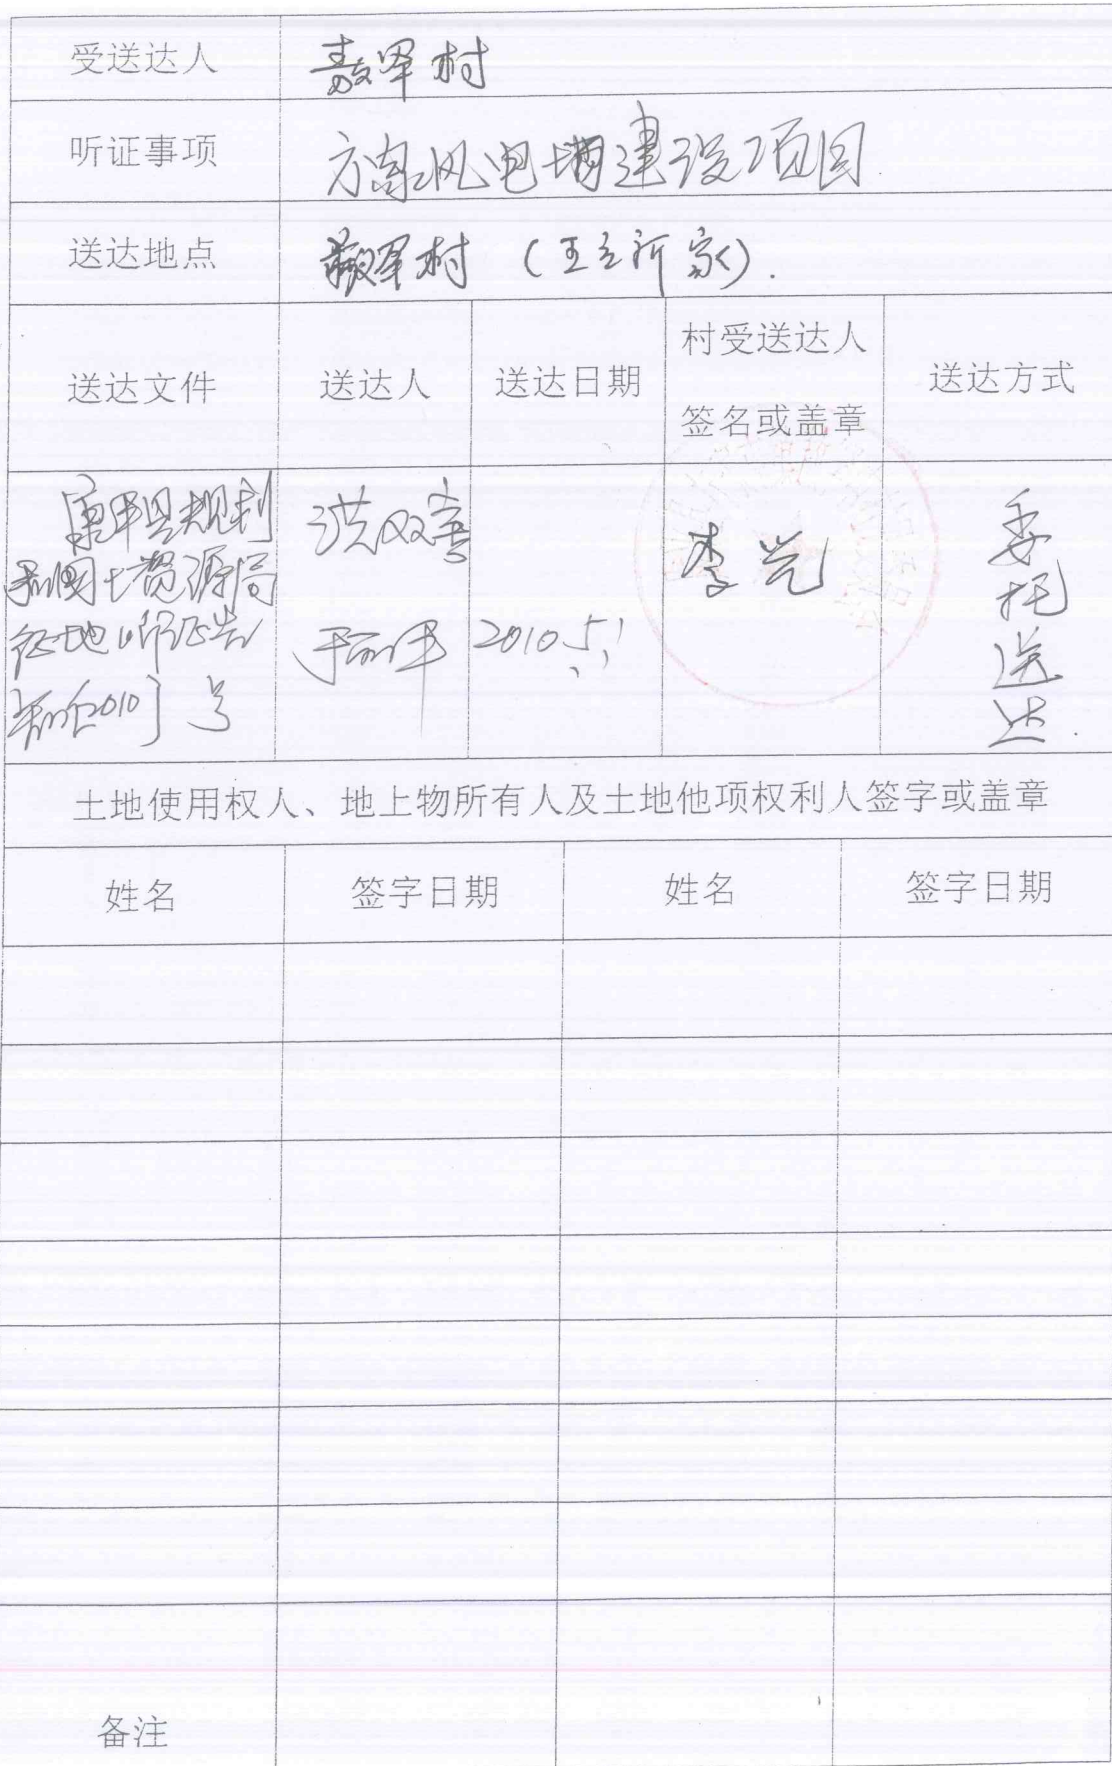 受送达人
敖军村
听证事项
方家风电场建设项目
送达地点
敖军村（王立新家）.
送达文件
送达人
送达日期
村受送达人
签名或盖章
送达方式
康平县规划
和国土资源局
征地听证告
知〔2010〕号
洪双喜
2010.5.1
李党
委托送达.
土地使用权人、地上物所有人及土地他项权利人签字或盖章
姓名
签字日期
姓名
签字日期
备注